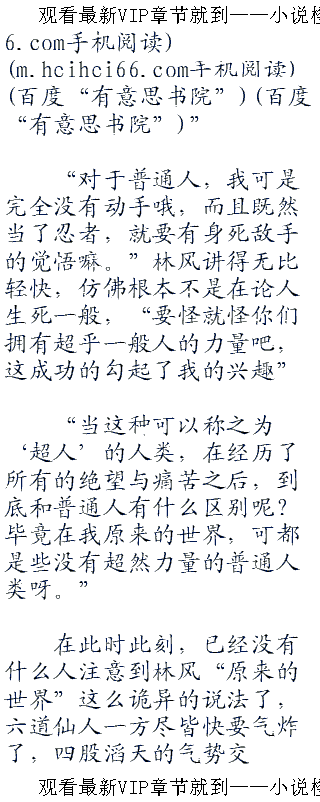 观看最新VIP章节就到——小说
6.com手机阅读)
(m.hcihci66.com手机阅读)
(百度“有意思书院”)(百度
“有意思书院”)”
“对于普通人，我可是
完全没有动手哦，而且既然
当了忍者，就要有身死敌手
的觉悟嘛。”林风讲得无比
轻快，仿佛根本不是在论人
生死一般，“要怪就怪你们
拥有超乎一般人的力量吧，
这成功的勾起了我的兴趣”
“当这种可以称之为
‘超人’的人类，在经历了
所有的绝望与痛苦之后，到
底和普通人有什么区别呢？
毕竟在我原来的世界，可都
是些没有超然力量的普通人
类呀。”
在此时此刻，已经没有
什么人注意到林风“原来的
世界”这么诡异的说法了，
六道仙人一方尽皆快要气炸
了，四股滔天的气势交
观看最新VIP章节就到——小说